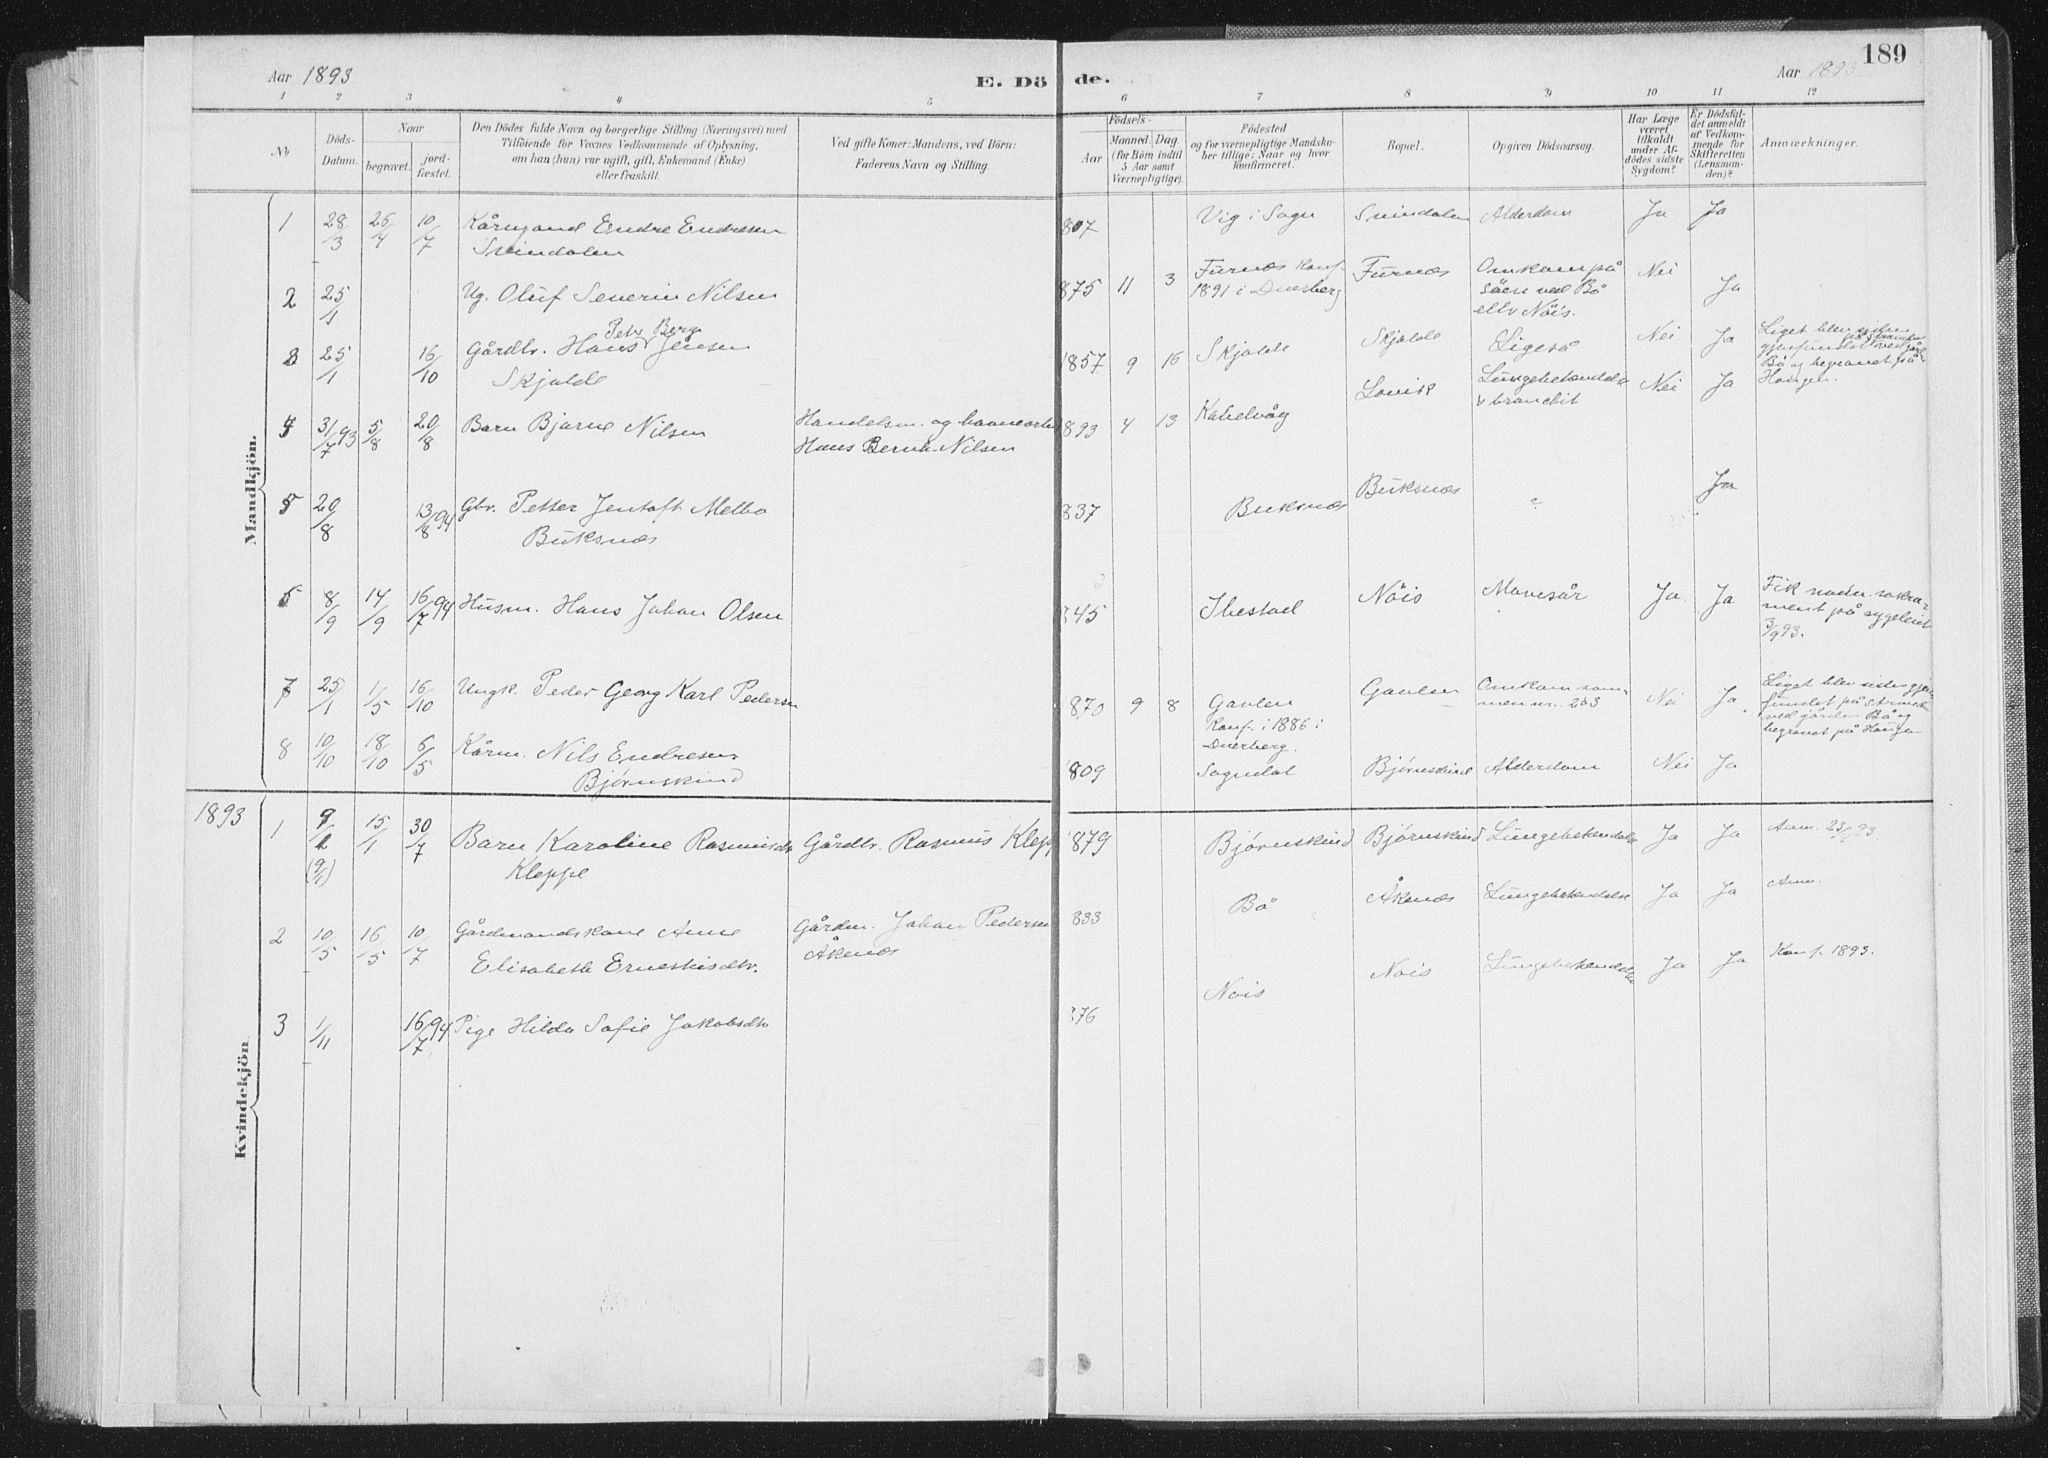 Aar 1893
E. Dö
de.
Aar 1893
189
1 2 3 4 5 6 7 8 9 10 11 12
No
Döds-
Datum.
Naar
begravet.
jord-
fæstet.
Den Dödes fulde Navn og borgerlige Stilling (Næringsvei) med
Tilföiende for Voxnes Vedkommende af Oplysning,
om han (hun) var ugift, gift, Enkemand (Enke)
eller fraskilt.
Ved gifte Koner: Mandens, ved Börn:
Faderens Navn og Stilling
Födsels-
Aar
Maaned. Dag
(for Börn indtil
5 Aar samt
Værnepligtige).
Födested
og for værnepligtige Mandska-
ber tillige: Naar og hvor
konfirmeret.
Bopæl.
Opgiven Dödsaarsag.
Har Læge
været
tilkaldt
under Af-
dödes sidste
Sygdom?
Er Dödsfal-
det anmeldt
af Vedkom-
mende for
Skifteretten
(Lensman-
den)?
Anmærkninger.
Mandkjön.
1 28/3 26/4 10/7 Kårmand Endre Endresen
Svindalen
807 Vig i Sogn Svindalen Alderdom Ja Ja
2 25/1 Ug. Oluf Severin Nilsen
875 11 3 Furnæs Konf.
1891 i Dverberg
Furnæs
Omkom på
söen ved Bö
ellr Nöis.
Nei Ja
3 25/1 16/10 Gårdbr. Hans Peter Berg Jensen
Skjolde
1857 9 16 Skjolde Skjolde Ligeså Nei Ja
Liget blev siden
gjenfundet på stranden ved gård
Bö og begravet på
Haugen.
4 31/7 93 5/8 20/8 Barn Bjarne Nilsen
Handelsm. og
Hans Bernh. Nilsen
893 4 13 Kabelvåg Lovik
Lungebetændelse
& bronchit
Nei Ja
5 20/8 13/8 94 Gbr. Petter Jentoft Melbo
Buksnæs
837 Buksnæs Buksnæs ? Ja
8/9 14/9 16/7 94 Husm. Hans Johan Olsen
845 Ibestad Nöis Mavesår Ja Ja
Fik nadv. sakra-
ment på sygeleiet
3/9 93.
7 25/1 1/5 16/10 Ungk. Peder Georg Karl Pedersen
870 9 8 Gavlen
Konf. i 1886 i
Dverberg.
Gavlen
Omkom sam-
men m. 2&3
Nei Ja
Liget blev siden gjen-
fundet på stranden
ved gården Bö og
begravet på Haugen
8 10/10 18/10 6/5 Kårm. Nils Endresen
Bjørnskind
809 Sogndal Bjørnskind Alderdom Nei Ja
1893
Kvindekjön
1 9/1 15/1 30/7 Barn Karoline Rasmusdtr
(9/1) Kleppe
Gårdbr. Rasmus Klepp
879 Bjørnskind Bjørnskind Lungebetændelse Ja Ja Anm.
2 10/5 16/5 10/7 Gårdmandskone Anne
Elisabeth Erneskisdtr.
Gårdm. Johan Pedersen
Åknæs
833 Bö Åknæs Lungebetændelse Ja Ja Anm.
3 1/11 16/7 94 Pige Hilda Sofie Jakobsdtr
876 Nois Nois Lungebetændelse Ja Ja Konf. 1893.